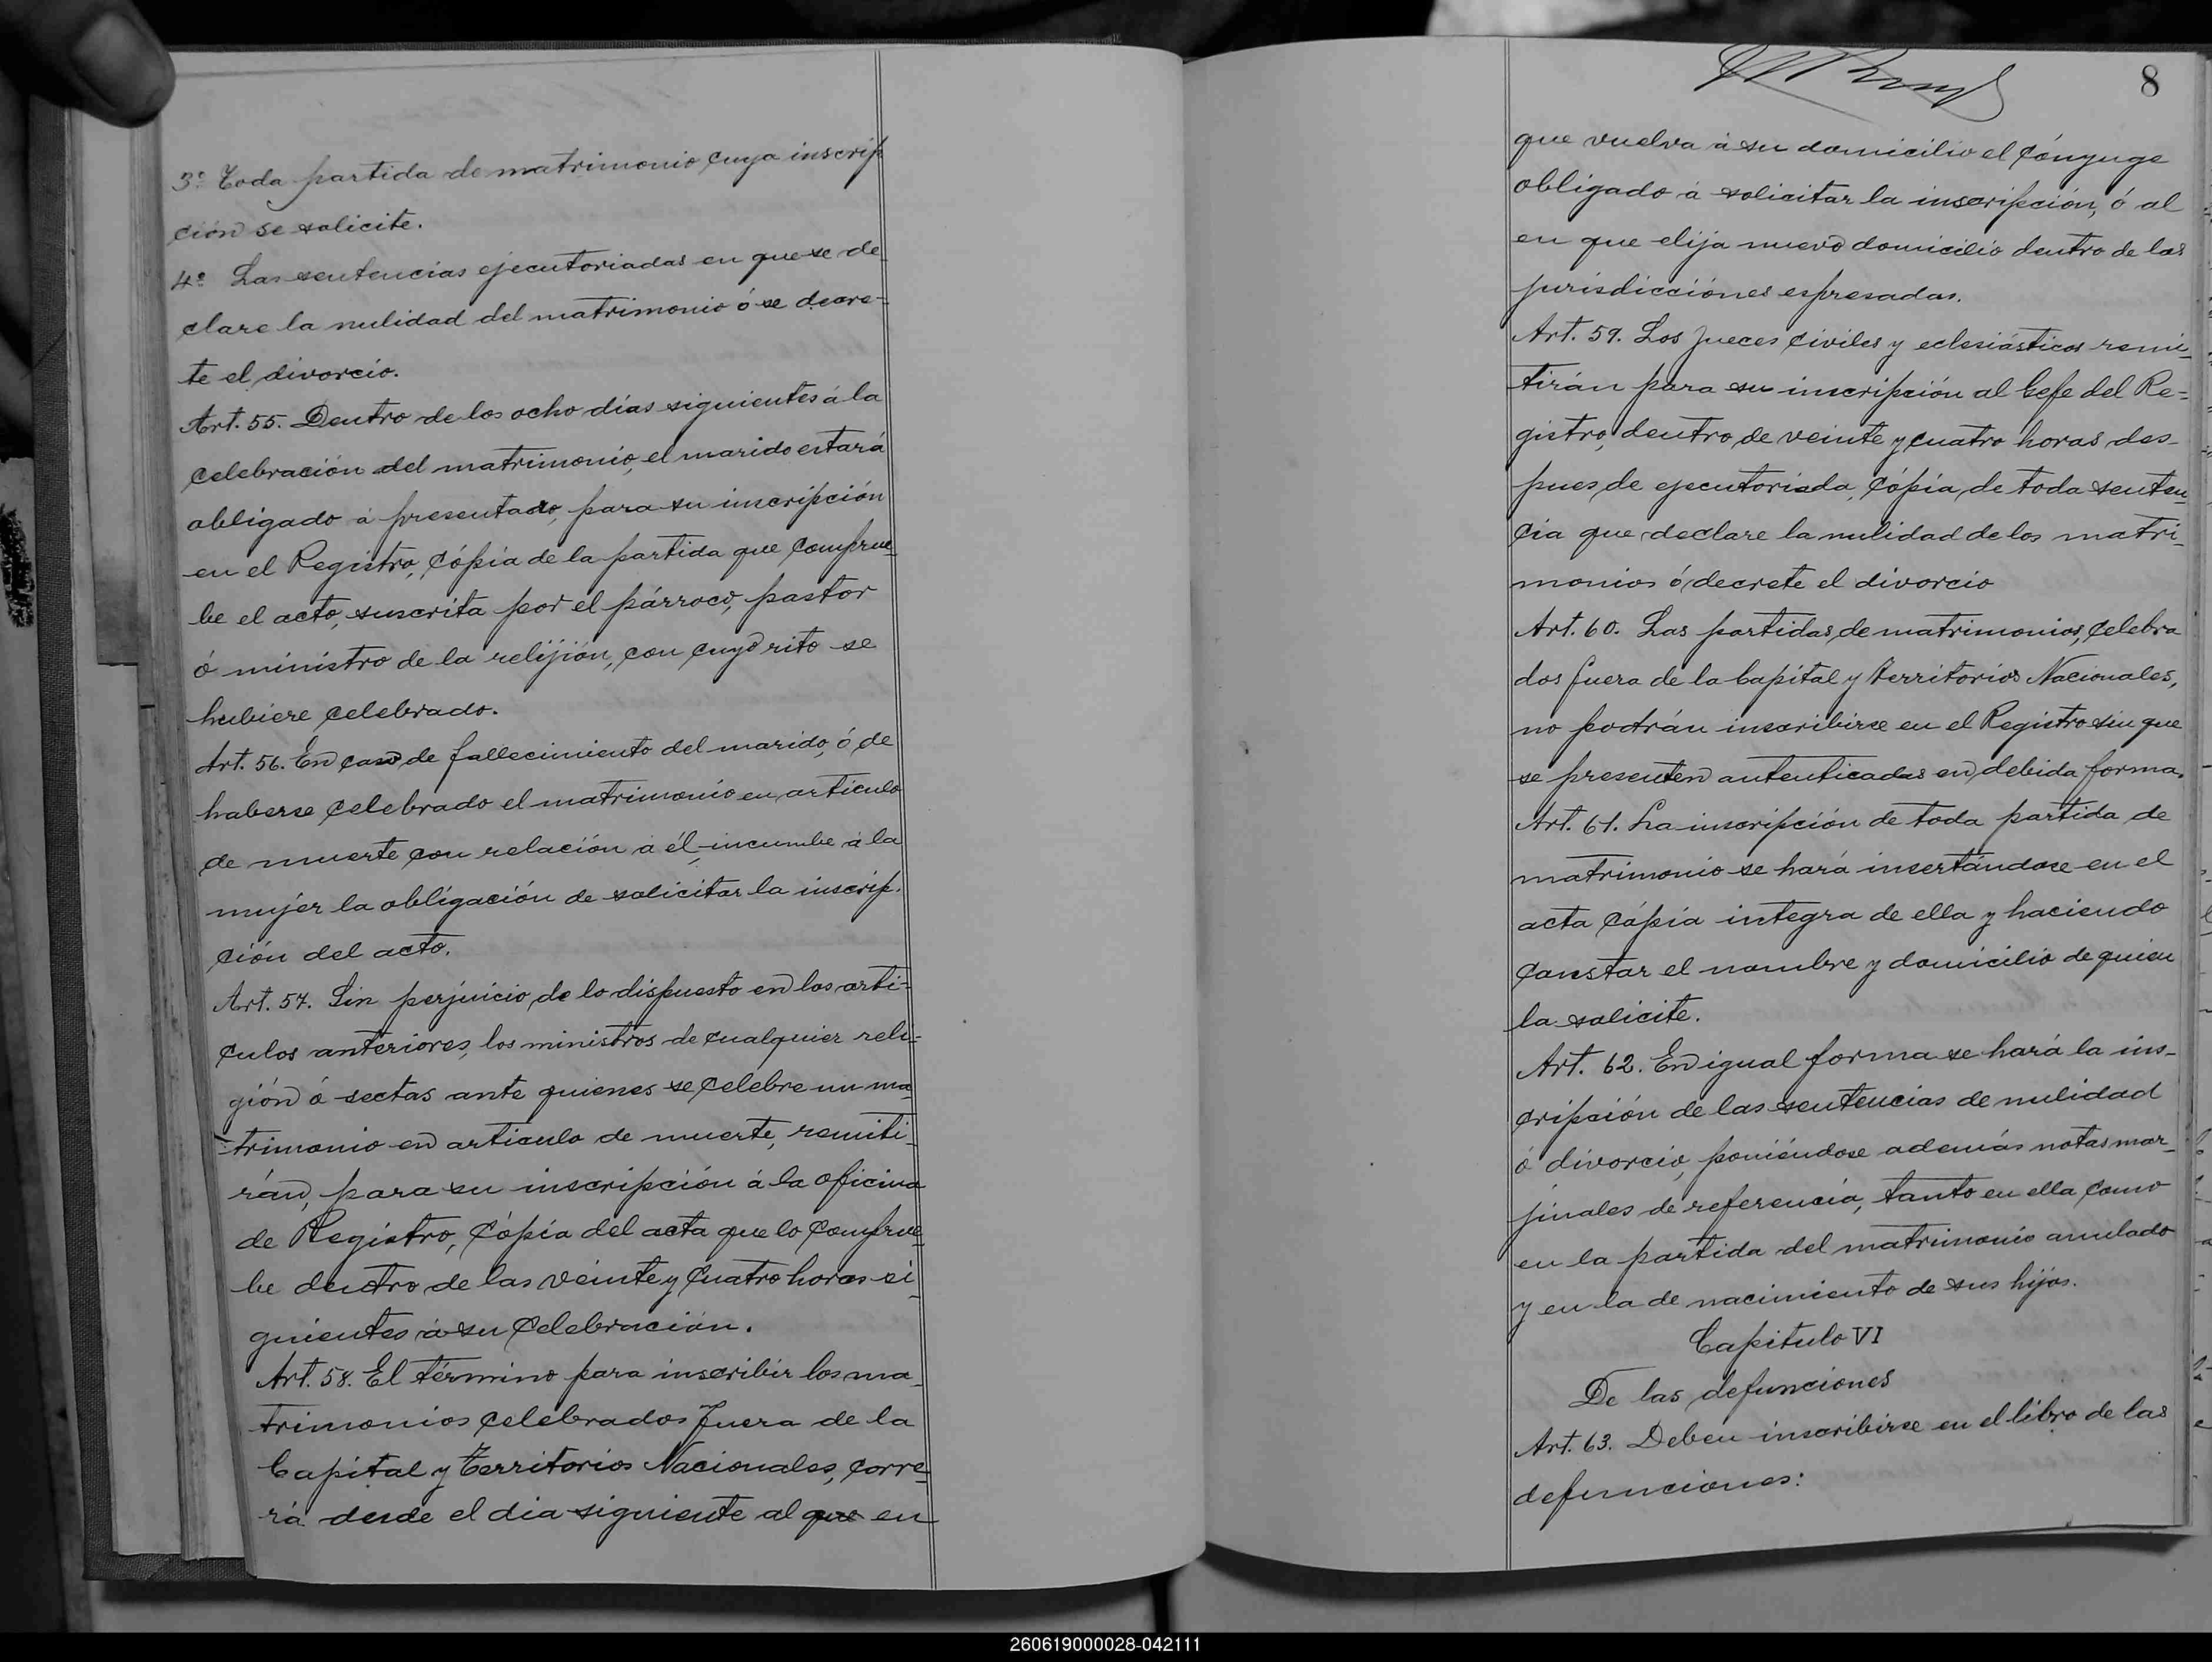 3º Toda partida de matrimonio cuya inscrip
ción se solicite.
4º Las sentencias ejecutoriadas en que se de
clare la nulidad del matrimonio ó se decre-
te el divorcio.
Art. 55. Dentro de los ocho días siguientes á la
celebración del matrimonio, el marido estará
obligado á presentado, para su inscripción
en el Registro, cópia de la partida que comprue-
be el acto, suscrita por el párroco, pastor
ó ministro de la relijión, con cuyo rito se
hubiere celebrado.
Art. 56. En caso de fallecimiento del marido, ó de
haberse celebrado el matrimonio en artículo
de muerte con relación á él, incumbe á la
mujer la obligación de solicitar la inscrip-
ción del acto.
Art. 57. Sin perjuicio de lo dispuesto en los artí-
culos anteriores, los ministros de cualquier reli-
gión ó sectas ante quienes se celebre un ma-
trimonio en articulo de muerte, remiti-
rán, para su inscripción á la oficina
de Registro, cópia del acta que lo comprue-
be dentro de las veinte y cuatro horas si-
guientes á su celebración.
Art. 58. El término para inscribir los ma-
trimonios celebrados fuera de la
Capital y Territorios Nacionales, corre-
rá desde el dia siguiente al que en
8
que vuelva á su domicilio el cónyuge
obligado á solicitar la inscripción, ó al
en que elija nuevo domicilio dentro de las
jurisdicciónes espresadas.
Art. 59. Los Jueces civiles y eclesiásticos remi-
tirán para su inscripción al Gefe del Re=
gistro, dentro de veinte y cuatro horas des-
pues, de ejecutoriada, cópia, de toda senten-
cia que declare la nulidad de los matri-
monios ó decrete el divorcio
Art. 60. Las partidas, de matrimonios, celebra
dos fuera de la Capital y Territorios Nacionales,
no podrán inscribirse en el Registro sin que
se presenten autenticadas en debida forma.
Art. 61. La inscripción de toda partida de
matrimonio se hará insertándose en el
acta cópia integra de ella y haciendo
constar el nombre y domicilio de quien
la solicite.
Art. 62. En igual forma se hará la ins-
cripción de las sentencias de nulidad
ó divorcio, poniéndose además notas mar-
jinales de referencia, tanto en ella como
en la partida del matrimonio anulado
y en la de nacimiento de sus hijos.
Capitulo VI
De las defunciones
Art. 63. Deben inscribirse en el libro de las
defunciones:
260619000028-042111